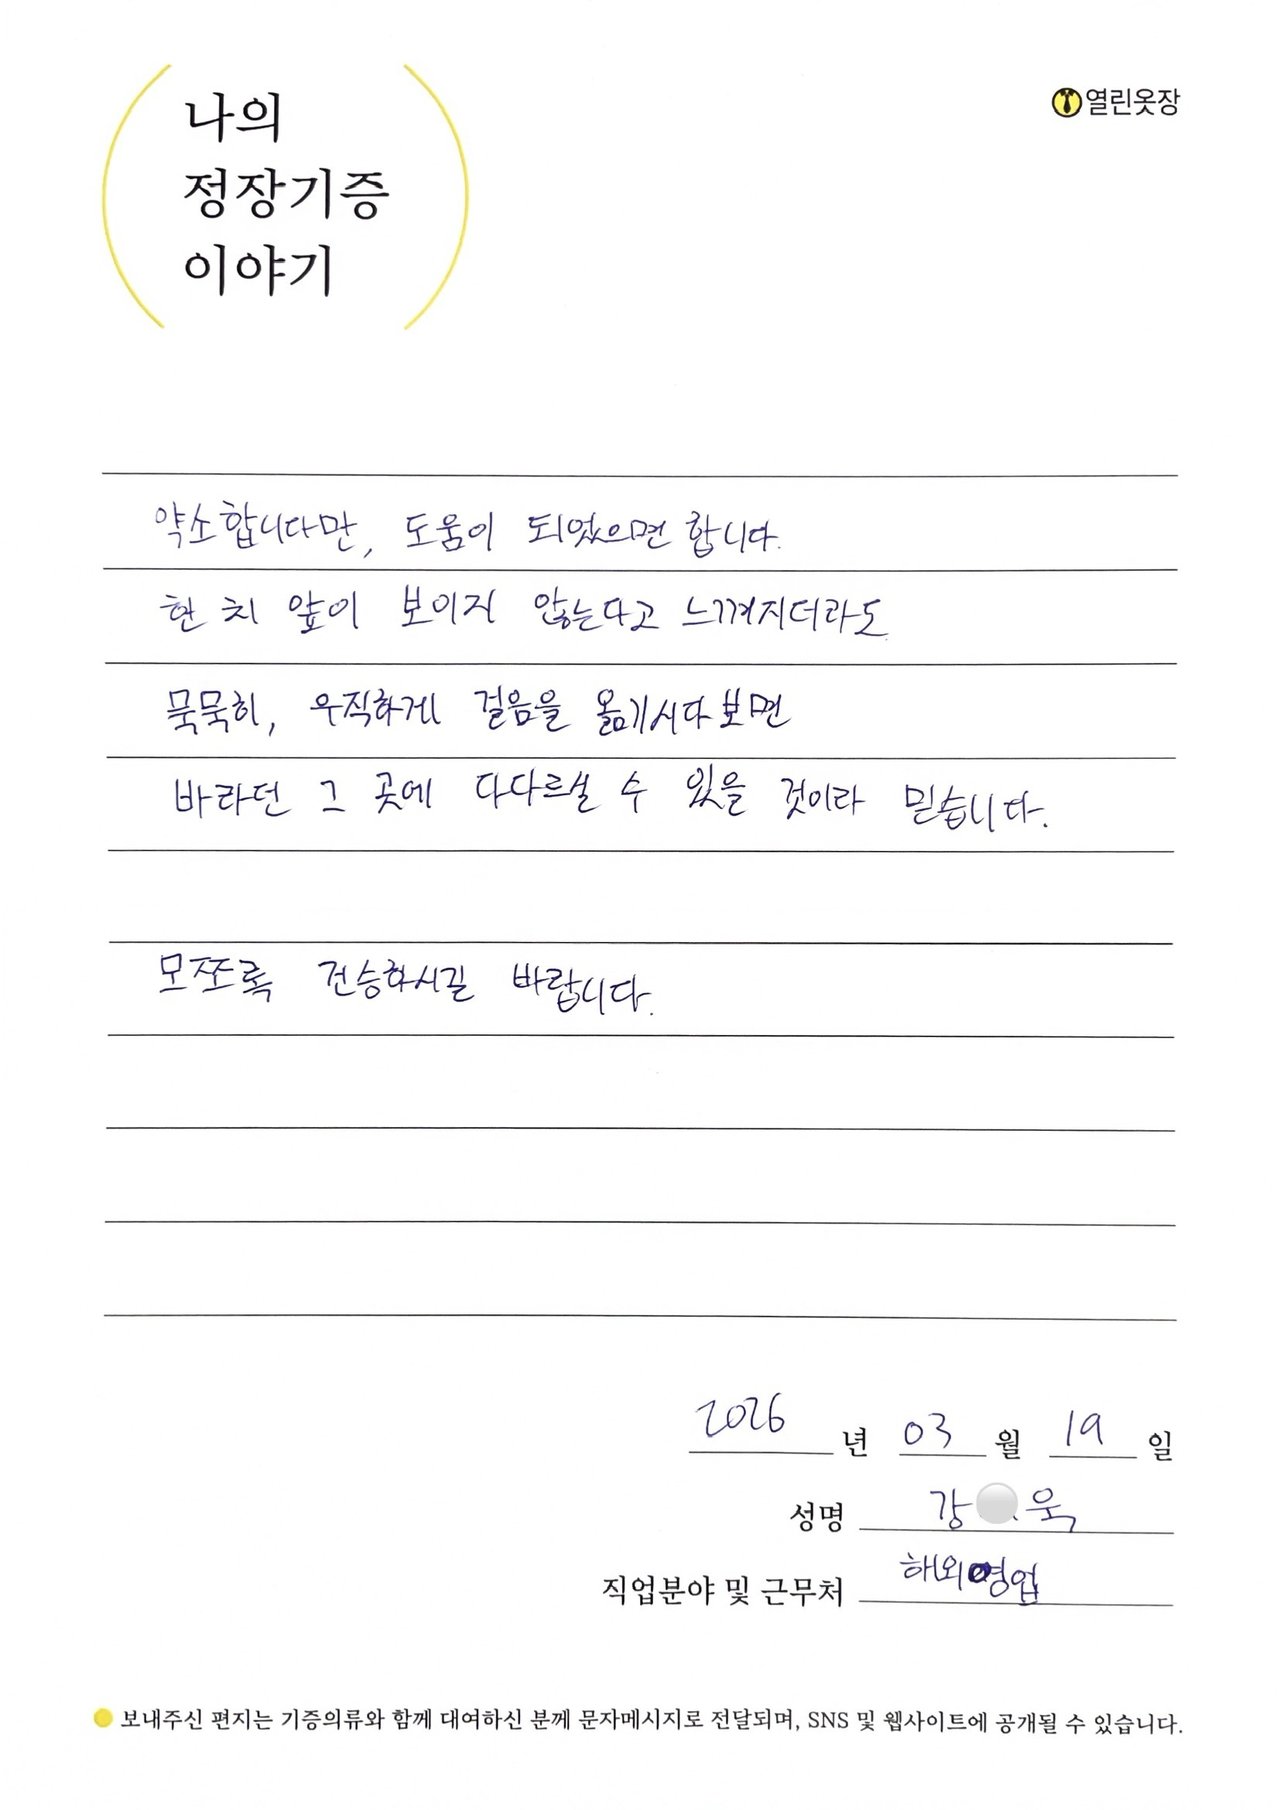 나의
정장기증
이야기
열린옷장
약소합니다만, 도움이 되었으면 합니다.
한 치 앞이 보이지 않는다고 느껴지더라도
묵묵히, 우직하게 걸음을 옮기시다보면
바라던 그 곳에 다다르실 수 있을 것이라 믿습니다.
모쪼록 건승하시길 바랍니다.
2026 년 03 월 19 일
성명 강 욱
직업분야 및 근무처 해외영업
보내주신 편지는 기증의류와 함께 대여하신 분께 문자메시지로 전달되며, SNS 및 웹사이트에 공개될 수 있습니다.